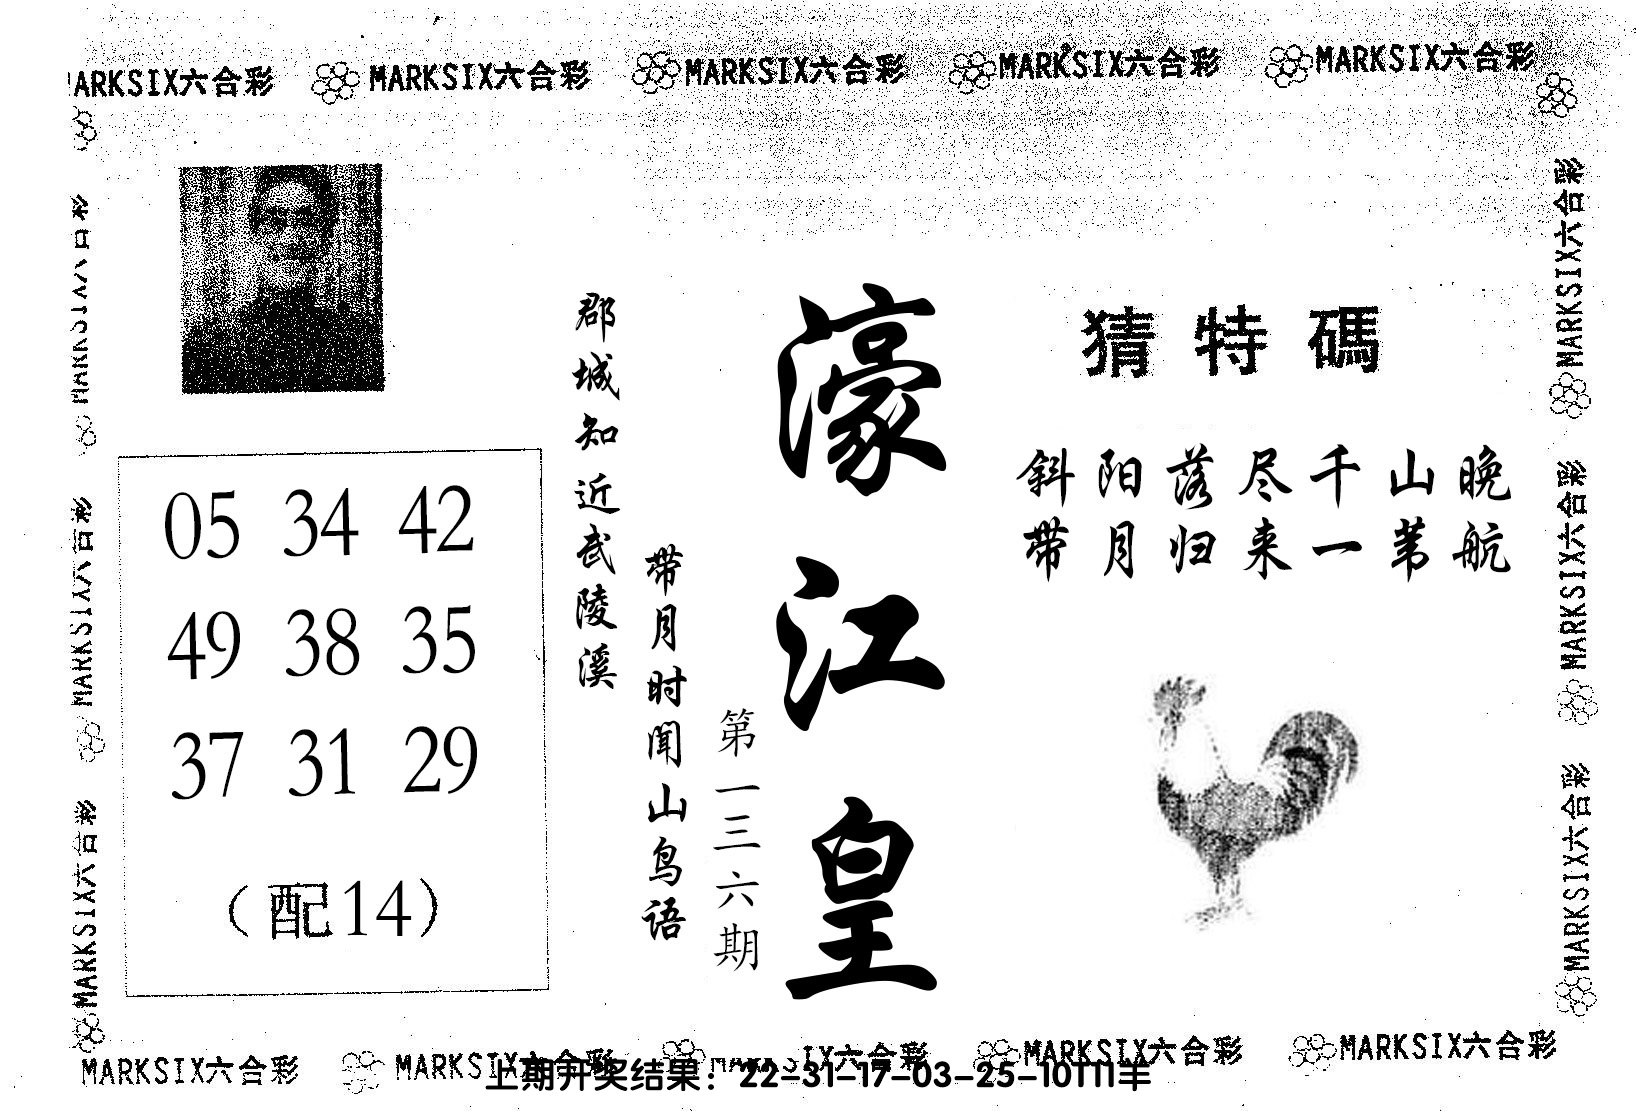 MARKSIX六合彩 MARKSIX六合彩 MARKSIX六合彩 MARKSIX六合彩
MARKSIX六合彩
MARKSIX六合彩
MARKSIX六合彩
MARKSIX六合彩
MARKSIX六合彩
MARKSIX六合彩
05 34 42
49 38 35
37 31 29
（配14）
郡城知近武陵溪
带月时闻山鸟语
第一三六期
濠江皇
猜特碼
斜阳落尽千山晚
带月归来一苇航
MARKSIX六合彩 MARKSIX六合彩 MARKSIX六合彩 MARKSIX六合彩
上期开奖结果：22-31-17-03-25-10T11羊